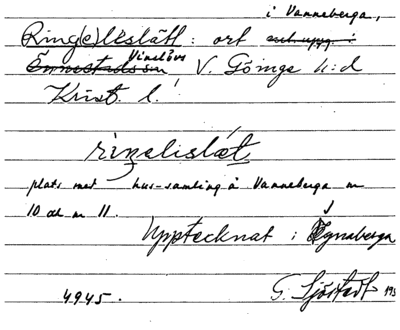 i Vanneberga,
Ring(e)leslätt: ort och uppg. i
Vinslövs
Önnestads sn V. Göinge h:d
Krist. l.
riŋəlislæt
plats med hus-samling å Vanneberga nr
10 och nr 11.
Upptecknat i Ignaberga
4945. G. Sjöstedt 193